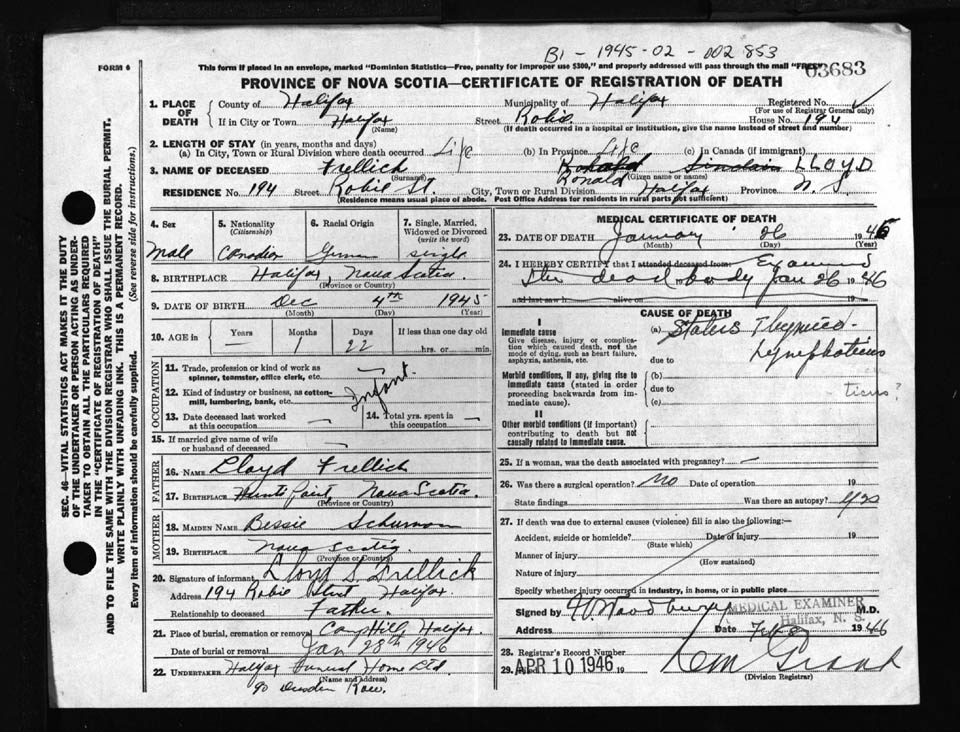 B1 - 1945-02 - 002853
FORM 6
This form if placed in an envelope, marked "Dominion Statistics—Free, penalty for improper use $300," and properly addressed will pass through the mail "FREE"
03683
PROVINCE OF NOVA SCOTIA—CERTIFICATE OF REGISTRATION OF DEATH
1. PLACE OF DEATH
County of Halifax
Municipality of Halifax
Registered No.
(For use of Registrar General only)
If in City or Town Halifax
(Name)
Street Robie House No. 194
(If death occurred in a hospital or institution, give the name instead of street and number)
2. LENGTH OF STAY (in years, months and days)
(a) In City, Town or Rural Division where death occurred Life (b) In Province Life (c) In Canada (if immigrant)
3. NAME OF DECEASED Frellick
(Surname)
Ronald Sinclair LLOYD
Ronald (Given name or names)
RESIDENCE No. 194 Street Robie St. City, Town or Rural Division Halifax Province N. S.
(Residence means usual place of abode. Post Office Address for residents in rural parts not sufficient)
4. Sex
Male
5. Nationality
(Citizenship)
Canadian
6. Racial Origin
German
7. Single, Married, Widowed or Divorced
(write the word)
single
8. BIRTHPLACE Halifax, Nova Scotia
(Province or Country)
9. DATE OF BIRTH Dec 4th 1945
(Month) (Day) (Year)
10. AGE in
Years —
Months 1
Days 22
If less than one day old
hrs. or min.
OCCUPATION
11. Trade, profession or kind of work as spinner, teamster, office clerk, etc.
12. Kind of industry or business, as cotton-mill, lumbering, bank, etc.
Infant.
13. Date deceased last worked at this occupation —
14. Total yrs. spent in this occupation —
15. If married give name of wife or husband of deceased —
FATHER
16. NAME Lloyd Frellick
17. BIRTHPLACE Nova Scotia.
(Province or Country)
MOTHER
18. MAIDEN NAME Bessie Schurman
19. BIRTHPLACE Nova Scotia
(Province or Country)
20. Signature of informant Lloyd S. Frellick
Address 194 Robie Street Halifax.
Relationship to deceased Father.
21. Place of burial, cremation or removal Camp Hill, Halifax.
Date of burial or removal Jan 28th 1946
22. UNDERTAKER Halifax Funeral Home Ltd
(Name and address)
90 Dresden Row.
MEDICAL CERTIFICATE OF DEATH
23. DATE OF DEATH January 26 1946
(Month) (Day) (Year)
24. I HEREBY CERTIFY that I attended deceased from Examined
the dead body Jan 26 1946
and last saw h alive on 19
CAUSE OF DEATH
I
Immediate cause
Give disease, injury or complication which caused death, not the mode of dying, such as heart failure, asphyxia, asthenia, etc.
(a) Status Thymico-
Lymphaticus
due to
Morbid conditions, if any, giving rise to immediate cause (stated in order proceeding backwards from immediate cause).
(b)
due to
ticus?
(c)
II
Other morbid conditions (if important) contributing to death but not causally related to immediate cause.
25. If a woman, was the death associated with pregnancy? —
26. Was there a surgical operation? No Date of operation 19
State findings Was there an autopsy? Yes
27. If death was due to external causes (violence) fill in also the following:—
Accident, suicide or homicide? Date of injury 19
(State which)
Manner of injury
(How sustained)
Nature of injury
Specify whether injury occurred in industry, in home, or in public place
Signed by Woodbury M.D.
MEDICAL EXAMINER
Halifax, N. S.
Address Date Feb 8 1946
28. Registrar's Record Number
29. Filed APR 10 1946 19
(Division Registrar)
SEC. 46—VITAL STATISTICS ACT MAKES IT THE DUTY OF THE UNDERTAKER OR PERSON ACTING AS UNDERTAKER TO OBTAIN ALL THE PARTICULARS REQUIRED IN THE "CERTIFICATE OF REGISTRATION OF DEATH" AND TO FILE THE SAME WITH THE DIVISION REGISTRAR WHO SHALL ISSUE THE BURIAL PERMIT.
WRITE PLAINLY WITH UNFADING INK. THIS IS A PERMANENT RECORD.
Every item of information should be carefully supplied. (See reverse side for instructions.)